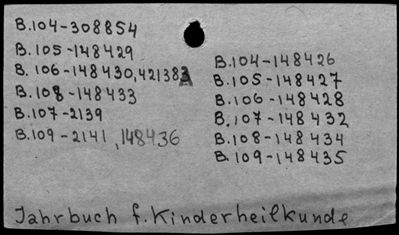 B.104-308854
B.105-148429
B.106-148430,421383A
B.108-148433
B.107-2139
B.109-2141,148436
B.104-148426
B.105-148427
B.106-148428
B.107-148432
B.108-148434
B.109-148435
Jahrbuch f. Kinderheilkunde